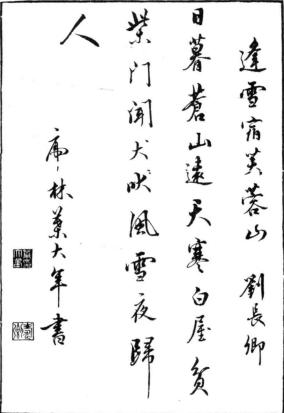 逢雪宿芙蓉山 劉長卿
日暮蒼山遠天寒白屋貧
柴门闻犬吠風雪夜歸
人
林葉大年書